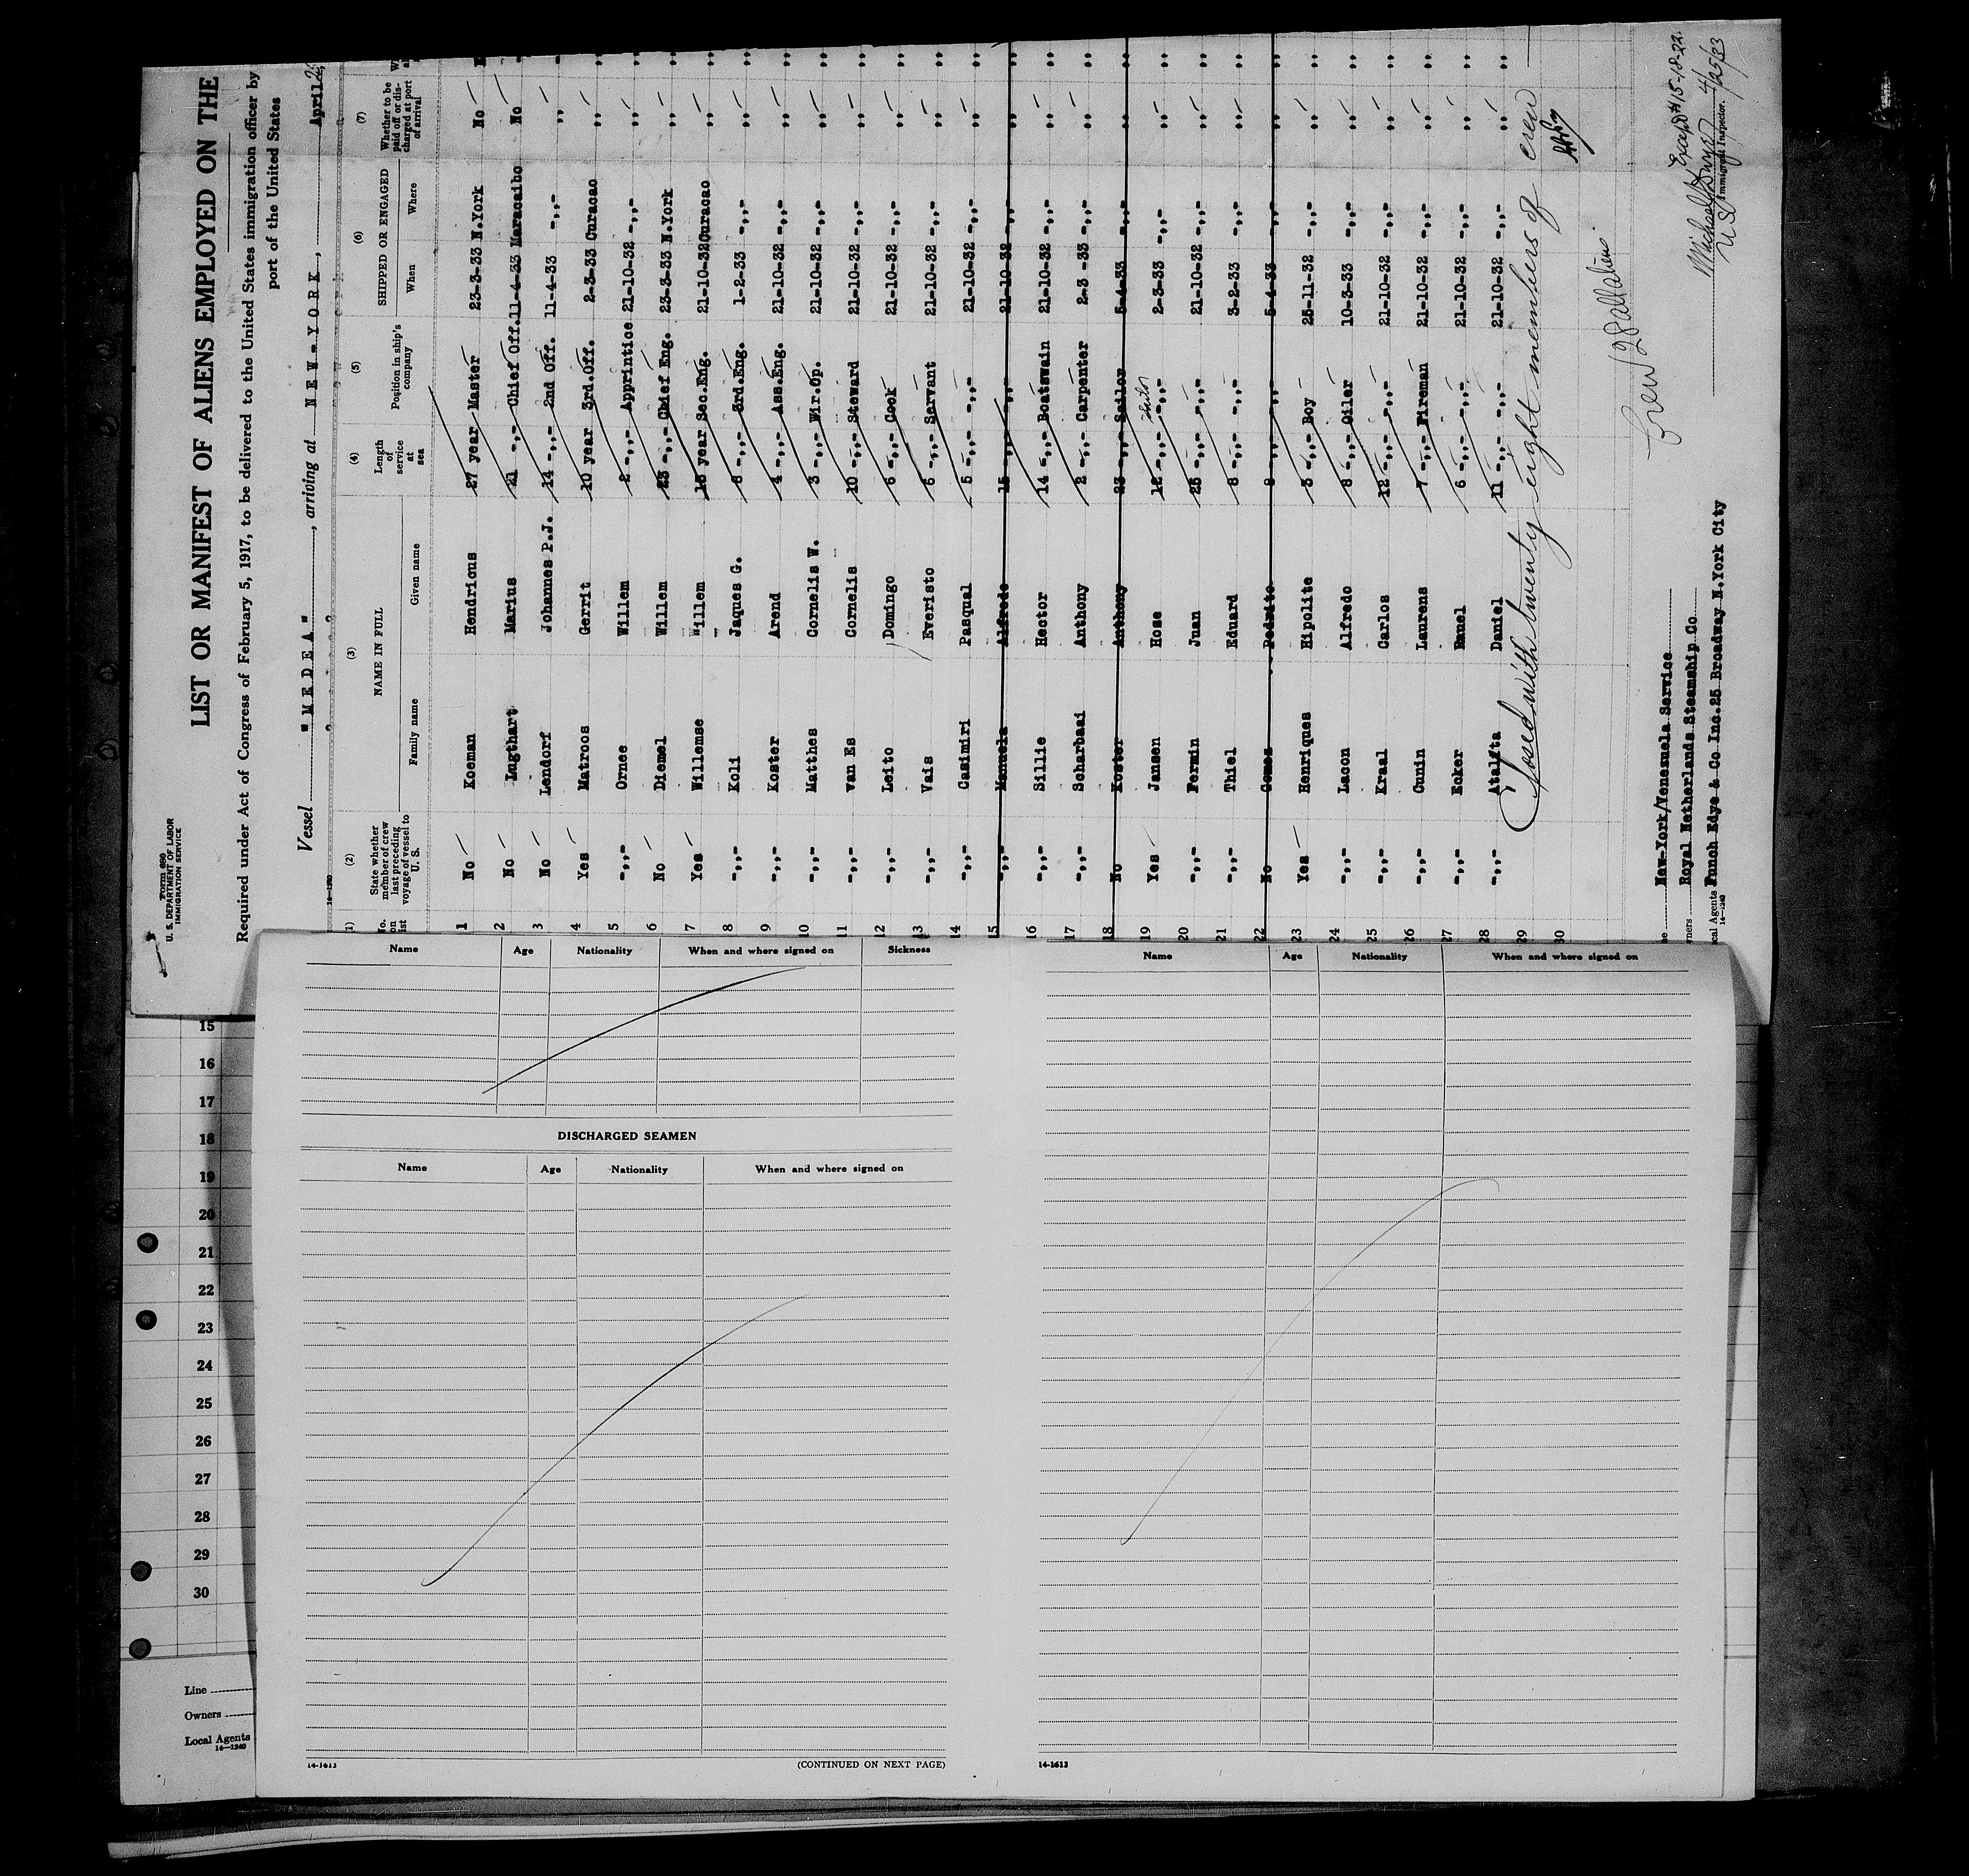 Form 680
U. S. DEPARTMENT OF LABOR
IMMIGRATION SERVICE
LIST OR MANIFEST OF ALIENS EMPLOYED ON THE
Required under Act of Congress of February 5, 1917, to be delivered to the United States immigration officer by
port of the United States
Vessel "MEDEA", arriving at NEW-YORK, April 2
14-1240
(1) (2) (3) (4) (5) (6) (7)
No. on list
State whether member of crew last preceding voyage of vessel to U. S.
NAME IN FULL
Family name Given name
Length of service at sea
Position in ship's company
SHIPPED OR ENGAGED
When Where
Whether to be paid off or discharged at port of arrival
1 No Koeman Hendricus 27 year Master 23-3-33 N.York No
2 No Lugthart Marius 21 -,,- Chief Off. 11-4-33 Maracaibo No
3 No Lendorf Johannes P.J. 14 -,,- 2nd Off. 11-4-33 -,,- ,,
4 Yes Matroos Gerrit 10 year 3rd.Off. 2-3-33 Curacao ,, ,,
5 -,,- Ornee Willem 2 -,,- Apprintice 21-10-32 -,,- ,, ,,
6 No Diemel Willem 23 -,,- Chief Eng. 23-3-33 N.York ,, ,,
7 Yes Willemse Willem 13 year Sec.Eng. 21-10-32 Curacao ,, ,,
8 -,,- Koli Jaques G. 8 -,,- 3rd.Eng. 1-2-33 -,,- ,, ,,
9 -,,- Koster Arend 4 -,,- Ass.Eng. 21-10-32 -,,- ,, ,,
10 -,,- Matthes Cornelis W. 3 -,,- Wir.Op. 21-10-32 -,,- ,, ,,
11 -,,- Van Es Cornelis 10 -,,- Steward 21-10-32 -,,- ,, ,,
12 -,,- Leito Domingo 6 -,,- Cook 21-10-32 -,,- ,, ,,
13 -,,- Vais Everisto 6 -,,- Servant 21-10-32 -,,- ,, ,,
14 -,,- Casimiri Pasqual 5 -,,- -,,- 21-10-32 -,,- ,, ,,
15 -,,- Manuela Alfredo 15 -,,- -,,- 21-10-32 -,,- ,, ,,
16 -,,- Sillie Hector 14 -,,- Boatswain 21-10-32 -,,- ,, ,,
17 -,,- Scharbaai Anthony 2 -,,- Carpenter 2-3-33 -,,- ,, ,,
18 No Koster Anthony 23 -,,- Sailor 5-4-33 -,,- ,, ,,
19 Yes Jansen Hose 12 -,,- -,,- Sailor 2-3-33 -,,- ,, ,,
20 -,,- Fermin Juan 25 -,,- -,,- 21-10-32 -,,- ,, ,,
21 -,,- Thiel Eduard 8 -,,- -,,- 3-2-33 -,,- ,, ,,
22 No Gomes Pedrito 8 -,,- -,,- 5-4-33 -,,- ,, ,,
23 Yes Henriques Hipolite 3 -,,- Boy 25-11-32 -,,- ,, ,,
24 -,,- Lacon Alfredo 8 -,,- Oiler 10-3-33 -,,- ,, ,,
25 -,,- Kraal Carlos 12 -,,- -,,- 21-10-32 -,,- ,, ,,
26 -,,- Cunin Laurens 7 -,,- Fireman 21-10-32 -,,- ,, ,,
27 -,,- Ecker Rauel 6 -,,- -,,- 21-10-32 -,,- ,, ,,
28 -,,- Atalita Daniel 11 -,,- -,,- 21-10-32 -,,- ,, ,,
29 Closed with twenty eight members of crew
30
Crew 28 all aliens
New-York/Venesuela Service
Owners Royal Netherlands Steamship Co
Local Agents Funch Edye & Co Inc. 25 Broadway N.York City
14-1240
4/25/33
U S Immigrant Inspector.
Name Age Nationality When and where signed on Sickness
DISCHARGED SEAMEN
Name Age Nationality When and where signed on
14-1613 (CONTINUED ON NEXT PAGE)
Name Age Nationality When and where signed on
14-1613
15
16
17
18
19
20
21
22
23
24
25
26
27
28
29
30
Line
Owners
Local Agents
14-1240